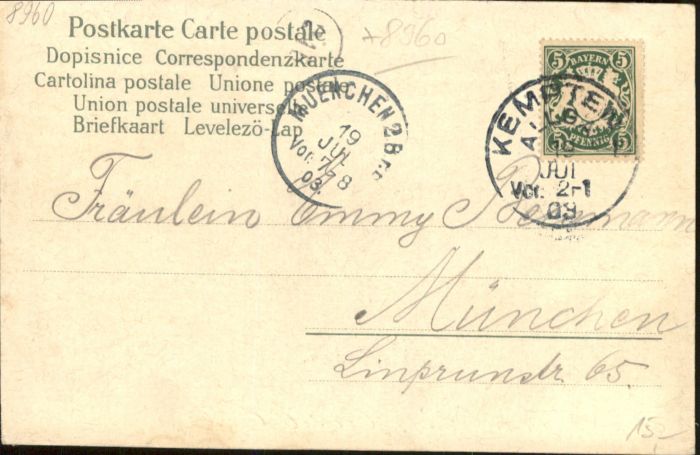 8960
Postkarte Carte postale
*8960
Dopisnice Correspondenzkarte
Cartolina postale Unione postale
Union postale universelle
Briefkaart Levelező-Lap
MUENCHEN 2 B.P.
19
JUL
Vor. 7-8
03.
5 BAYERN 5
PFENNIG
KEMPTEN
ALLG.
JUL
Vor. 2-1
03
Fräulein Emmy
München
Linprunstr 65.
15,-